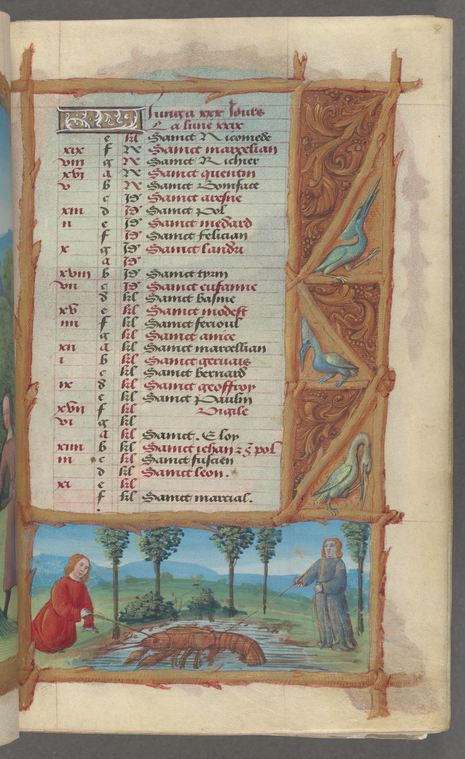 8
Juing a xxx Jours
Et a lune xxix
e kl Sainct Nicomede
xix f N Sainct marcelian
viii g N Sainct Richier
xvi a N Sainct quentin
v b N Sainct Boniface
c Sainct
xiii d Sainct Pol
ii e Sainct medard
f Sainct felician
x g Sainct landri
a
xviii b Sainct
vii c Sainct eufanne
d kl Sainct basine
xv e kl Sainct modest
iiii f kl Sainct ferioul
g kl Sainct anice
xii a kl Sainct marcellian
i b kl Sainct gervais
c kl Sainct bernard
ix d kl Sainct geoffroy
e kl Sainct Paulin
xvii f kl Vigile
vi g kl
a kl Sainct. Eloy
xiiii b kl Sainct iehan z s pol
iii c kl Sainct fuscien
d kl Sainct leon.
xi e kl
f kl Sainct marcial.